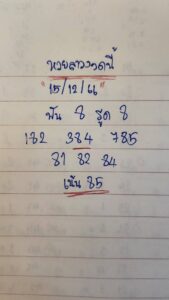 หวยลาวงวดนี้
"15/12/66"
ฟัน 8 รูด 8
182 384 785
81 82 84
เน้น 85